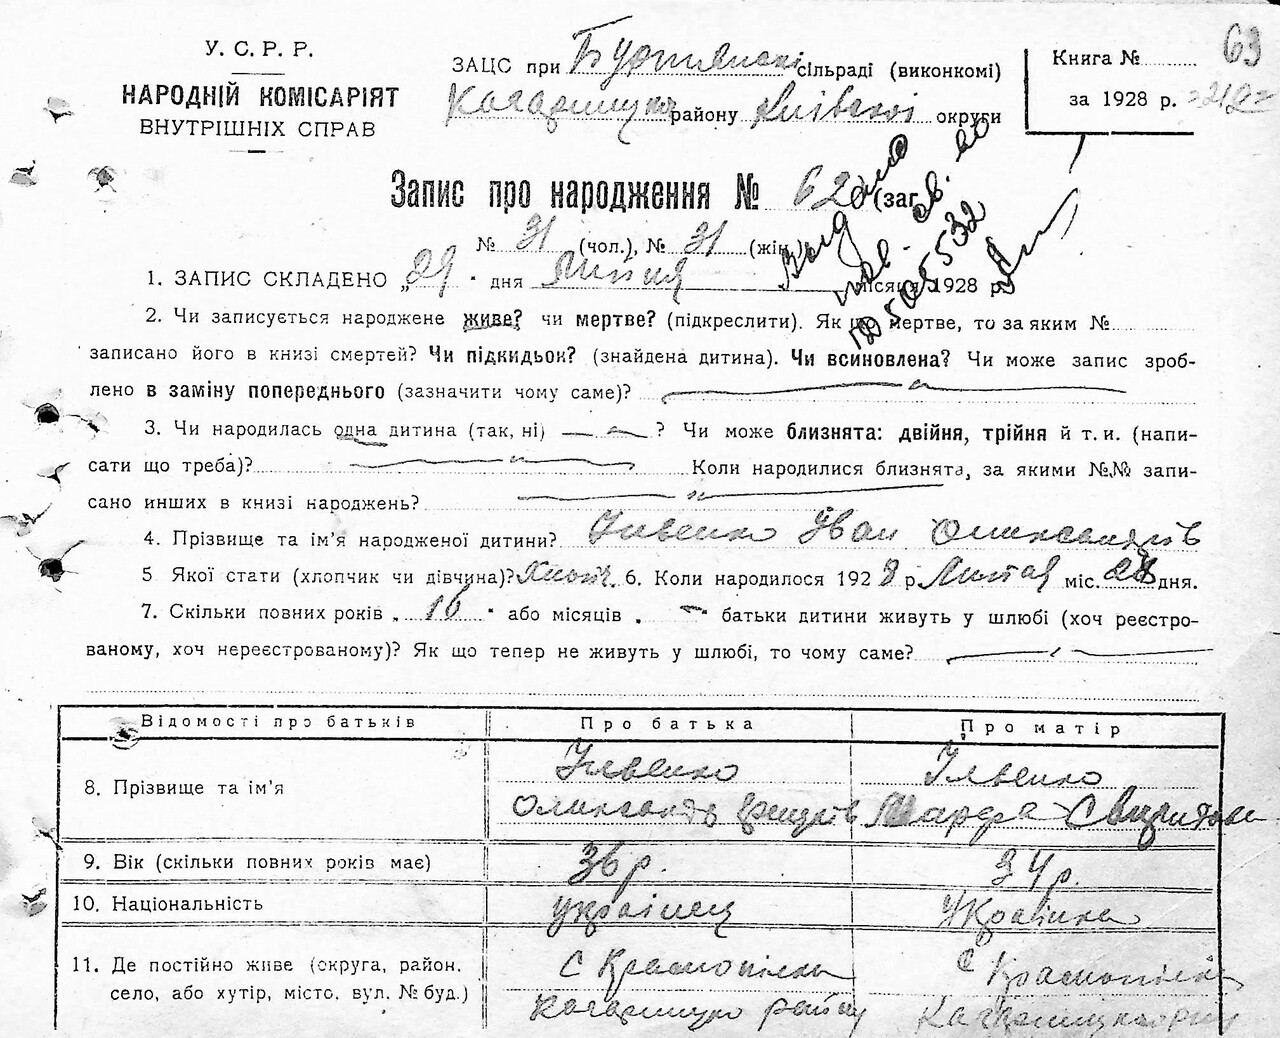 У. С. Р. Р.
НАРОДНІЙ КОМІСАРІЯТ
ВНУТРІШНІХ СПРАВ
ЗАЦС при сільраді (виконкомі)
району округи
Книга № 63
за 1928 р.
Запис про народження № 62 (заг
№ 31 (чол.), № 31 (жін.)
1. ЗАПИС СКЛАДЕНО „29" дня Липня місяця 1928 р.
2. Чи записується народжене живе? чи мертве? (підкреслити). Як що мертве, то за яким №
записано його в книзі смертей? Чи підкидьок? (знайдена дитина). Чи всиновлена? Чи може запис зроб-
лено в заміну попереднього (зазначити чому саме)?
3. Чи народилась одна дитина (так, ні) ? Чи може близнята: двійня, трійня й т. и. (напи-
сати що треба)? Коли народилися близнята, за якими №№ запи-
сано инших в книзі народжень?
4. Прізвище та ім'я народженої дитини? Ільвенко Іван
5 Якої стати (хлопчик чи дівчина)? Хлопч. 6. Коли народилося 1928 р. міс. 28 дня.
7. Скільки повних років „ 16 " або місяців „ — " батьки дитини живуть у шлюбі (хоч реєстро-
ваному, хоч нереєстрованому)? Як що тепер не живуть у шлюбі, то чому саме?
Відомості про батьків Про батька Про матір
8. Прізвище та ім'я Ільвенко Ільвенко
Марфа
9. Вік (скільки повних років має) 36 р. 34 р.
10. Національність українец Українка
11. Де постійно живе (округа, район, с Краснопілка с Краснопілка
село, або хутір, місто, вул. № буд.) району